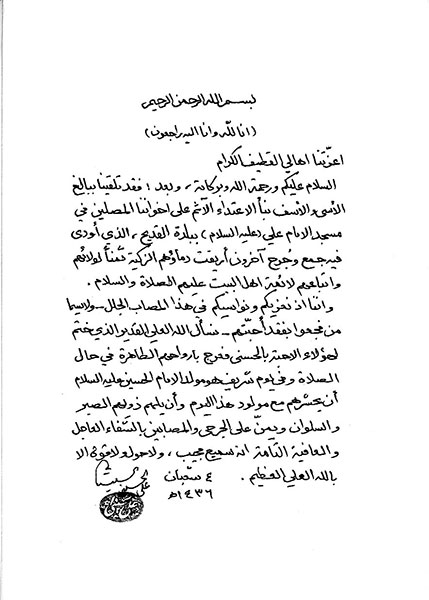 بسم الله الرحمن الرحيم
(انا لله وانا اليه راجعون)
اعزّتنا اهالي القطيف الكرام
السلام عليكم ورحمة الله وبركاته، وبعد: فقد تلقينا ببالغ
الأسى والأسف نبأ الاعتداء الآثم على اخواننا المصلين في
مسجد الامام علي (عليه السلام) ببلدة القديح، الذي أودى
فيه جمع وجرح آخرون أريقت دماؤهم الزكية ثمناً لولائهم
واتباعهم لائمة اهل البيت عليهم الصلاة والسلام.
واننا اذ نعزيكم ونواسيكم في هذا المصاب الجلل - ولاسيما
من فجعوا بفقد أحبّتهم - نسأل الله العلي القدير الذي ختم
لهؤلاء الاحبة بالحسنى فعرج بارواحهم الطاهرة في حال
الصلاة وفي يوم شريف هو مولد الامام الحسين عليه السلام
أن يحشرهم مع مولود هذا اليوم وأن يلهم ذويهم الصبر
والسلوان ويمنّ على الجرحى والمصابين بالشفاء العاجل
والعافية التامة انه سميع مجيب، ولاحول ولاقوة الا
بالله العلي العظيم.
٤ شعبان
١٤٣٦هـ
علي الحسيني السيستاني